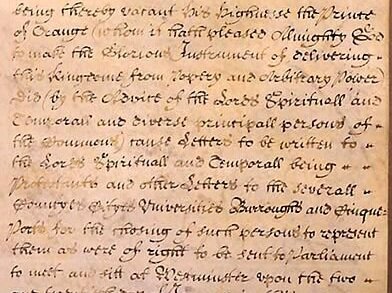 being thereby vacant His Highnesse the Prince
of Orange (whom it hath pleased Almighty God
to make the Glorious Instrument of delivering
this Kingdome from Popery and Arbitrary Power)
did (by the Advice of the Lords Spirituall and
Temporall and diverse principall persons of
the Commons) cause Letters to be written to
the Lords Spirituall and Temporall being
Protestants and other Letters to the severall
Countyes Cityes Universities Burroughs and Cinque
Ports for the choosing of such persons to represent
them as were of right to be sent to Parliament
to meet and sitt at Westminster upon the two
and